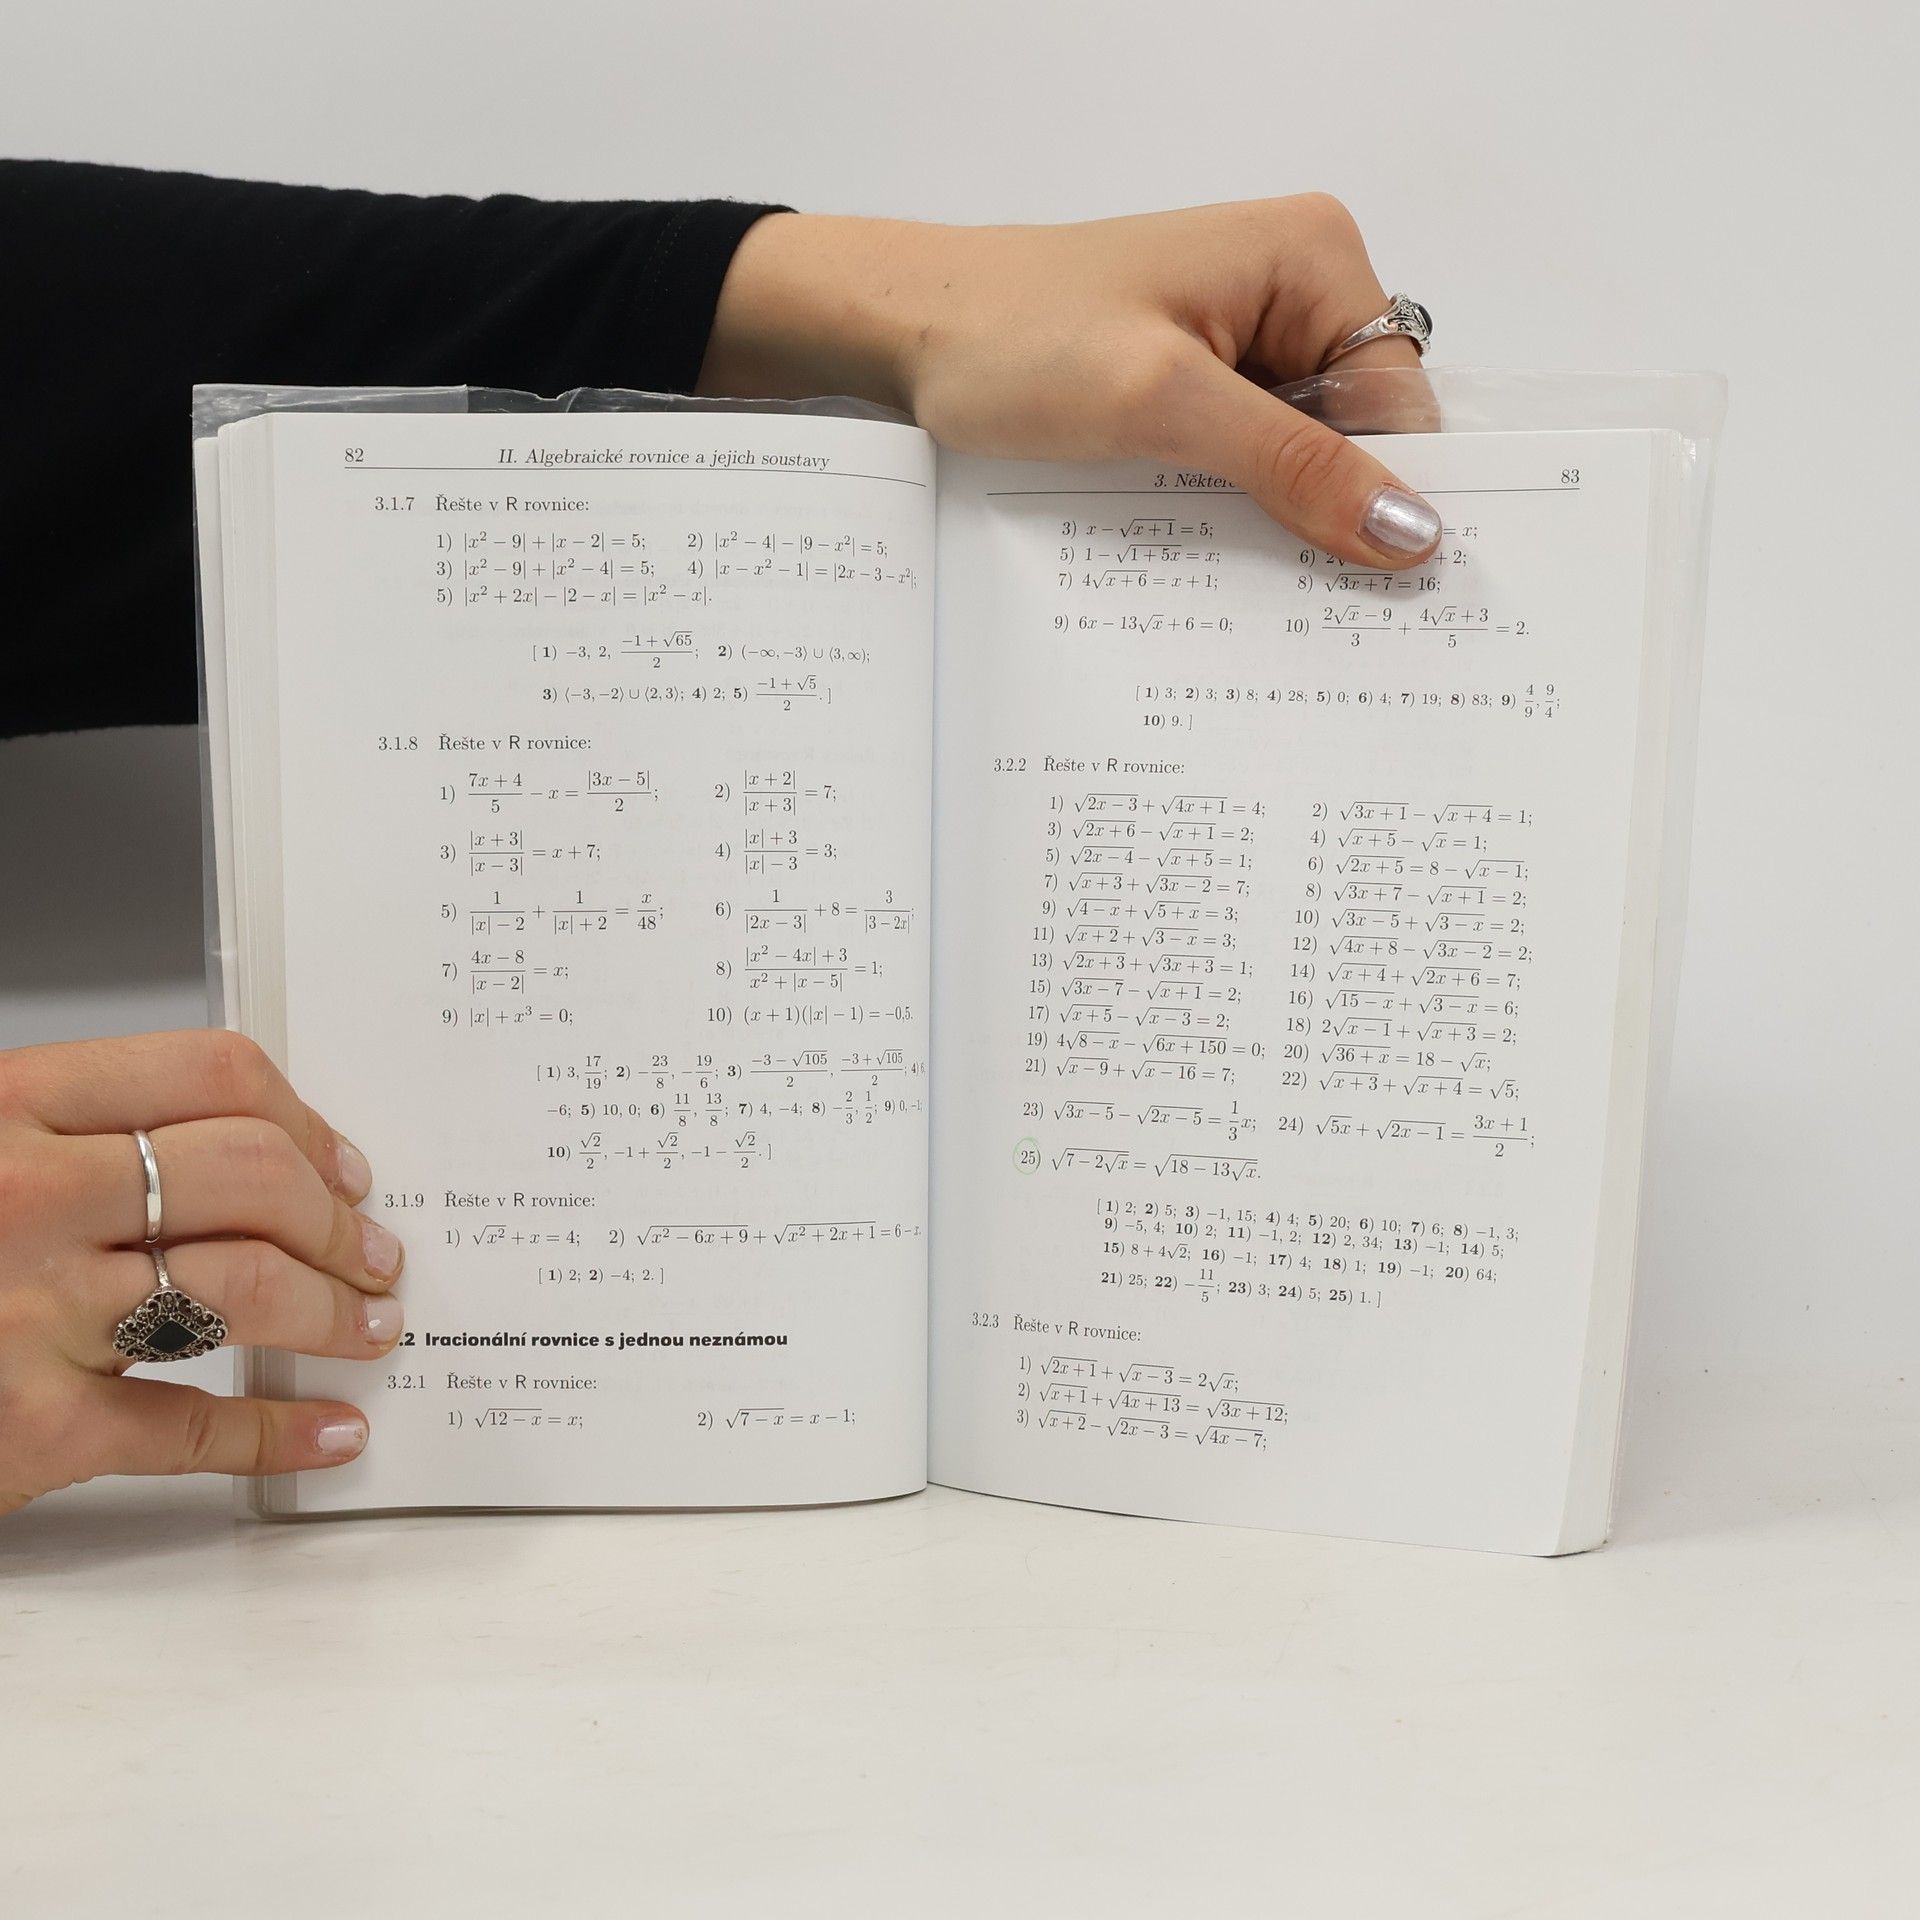 82 II. Algebraické rovnice a jejich soustavy
3.1.7 Řešte v R rovnice:
1) |x² − 9| + |x − 2| = 5; 2) |x² − 4| − |9 − x²| = 5;
3) |x² − 9| + |x² − 4| = 5; 4) |x − x² − 1| = |2x − 3 − x²|;
5) |x² + 2x| − |2 − x| = |x² − x|.
[ 1) −3, 2, (−1 + √65)/2; 2) (−∞, −3⟩ ∪ ⟨3, ∞);
3) ⟨−3, −2⟩ ∪ ⟨2, 3⟩; 4) 2; 5) (−1 + √5)/2. ]
3.1.8 Řešte v R rovnice:
1) (7x + 4)/5 − x = |3x − 5|/2; 2) |x + 2|/|x + 3| = 7;
3) |x + 3|/|x − 3| = x + 7; 4) (|x| + 3)/(|x| − 3) = 3;
5) 1/(|x| − 2) + 1/(|x| + 2) = x/48; 6) 1/|2x − 3| + 8 = 3/|3 − 2x|;
7) (4x − 8)/|x − 2| = x; 8) (|x² − 4x| + 3)/(x² + |x − 5|) = 1;
9) |x| + x³ = 0; 10) (x + 1)(|x| − 1) = −0,5.
[ 1) 3, 17/19; 2) −23/8, −19/6; 3) (−3 − √105)/2, (−3 + √105)/2; 4) 6,
−6; 5) 10, 0; 6) 11/8, 13/8; 7) 4, −4; 8) −2/3, 1/2; 9) 0, −1;
10) √2/2, −1 + √2/2, −1 − √2/2. ]
3.1.9 Řešte v R rovnice:
1) √(x²) + x = 4; 2) √(x² − 6x + 9) + √(x² + 2x + 1) = 6 − x.
[ 1) 2; 2) −4; 2. ]
.2 Iracionální rovnice s jednou neznámou
3.2.1 Řešte v R rovnice:
1) √(12 − x) = x; 2) √(7 − x) = x − 1;
3. Někter 83
3) x − √(x + 1) = 5; = x;
5) 1 − √(1 + 5x) = x; 6) 2√ + 2;
7) 4√(x + 6) = x + 1; 8) √(3x + 7) = 16;
9) 6x − 13√x + 6 = 0; 10) (2√x − 9)/3 + (4√x + 3)/5 = 2.
[ 1) 3; 2) 3; 3) 8; 4) 28; 5) 0; 6) 4; 7) 19; 8) 83; 9) 4/9, 9/4;
10) 9. ]
3.2.2 Řešte v R rovnice:
1) √(2x − 3) + √(4x + 1) = 4; 2) √(3x + 1) − √(x + 4) = 1;
3) √(2x + 6) − √(x + 1) = 2; 4) √(x + 5) − √x = 1;
5) √(2x − 4) − √(x + 5) = 1; 6) √(2x + 5) = 8 − √(x − 1);
7) √(x + 3) + √(3x − 2) = 7; 8) √(3x + 7) − √(x + 1) = 2;
9) √(4 − x) + √(5 + x) = 3; 10) √(3x − 5) + √(3 − x) = 2;
11) √(x + 2) + √(3 − x) = 3; 12) √(4x + 8) − √(3x − 2) = 2;
13) √(2x + 3) + √(3x + 3) = 1; 14) √(x + 4) + √(2x + 6) = 7;
15) √(3x − 7) − √(x + 1) = 2; 16) √(15 − x) + √(3 − x) = 6;
17) √(x + 5) − √(x − 3) = 2; 18) 2√(x − 1) + √(x + 3) = 2;
19) 4√(8 − x) − √(6x + 150) = 0; 20) √(36 + x) = 18 − √x;
21) √(x − 9) + √(x − 16) = 7; 22) √(x + 3) + √(x + 4) = √5;
23) √(3x − 5) − √(2x − 5) = 1/3 x; 24) √(5x) + √(2x − 1) = (3x + 1)/2;
25) √(7 − 2√x) = √(18 − 13√x).
[ 1) 2; 2) 5; 3) −1, 15; 4) 4; 5) 20; 6) 10; 7) 6; 8) −1, 3;
9) −5, 4; 10) 2; 11) −1, 2; 12) 2, 34; 13) −1; 14) 5;
15) 8 + 4√2; 16) −1; 17) 4; 18) 1; 19) −1; 20) 64;
21) 25; 22) −11/5; 23) 3; 24) 5; 25) 1. ]
3.2.3 Řešte v R rovnice:
1) √(2x + 1) + √(x − 3) = 2√x;
2) √(x + 1) + √(4x + 13) = √(3x + 12);
3) √(x + 2) − √(2x − 3) = √(4x − 7);